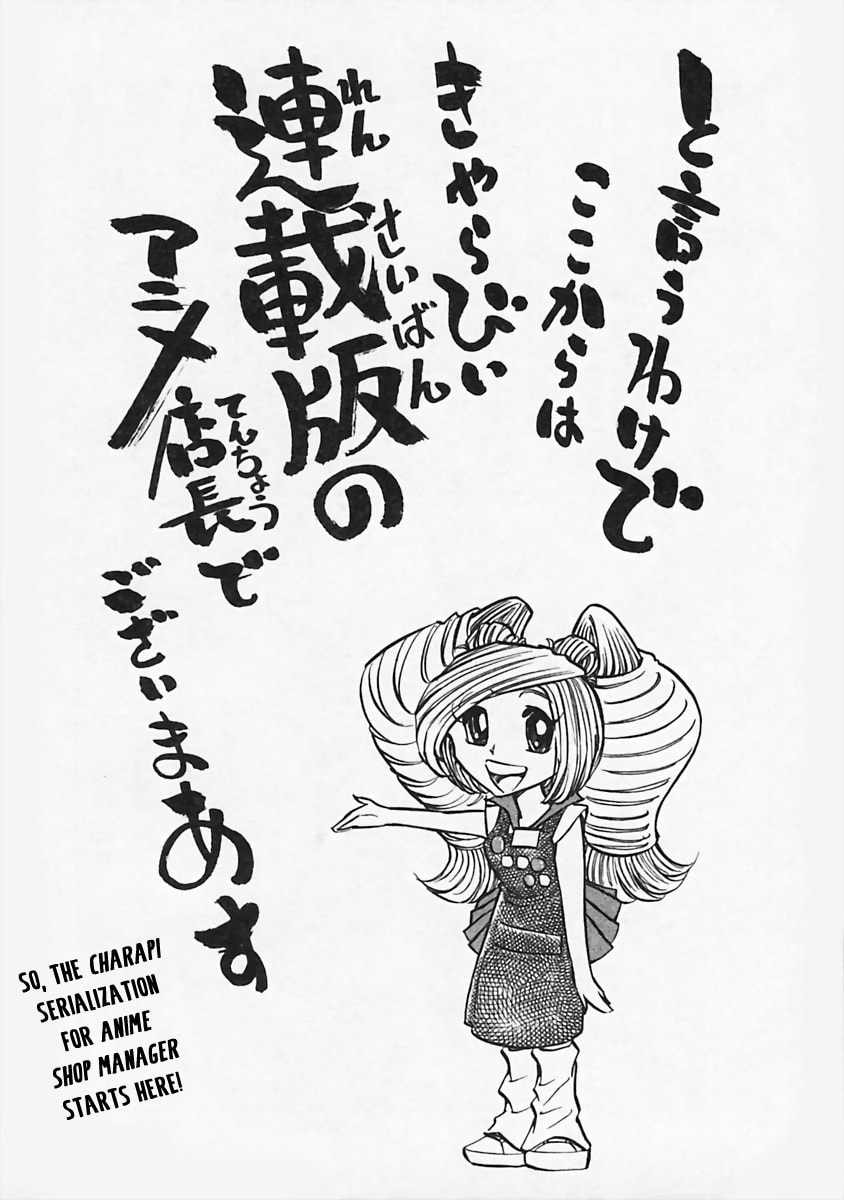 と言うわけで
ここからは
きゃらびぃ
連載版の
れんさいばん
アニメ店長で
てんちょう
ございまあす
SO, THE CHARAPI
SERIALIZATION
FOR ANIME
SHOP MANAGER
STARTS HERE!